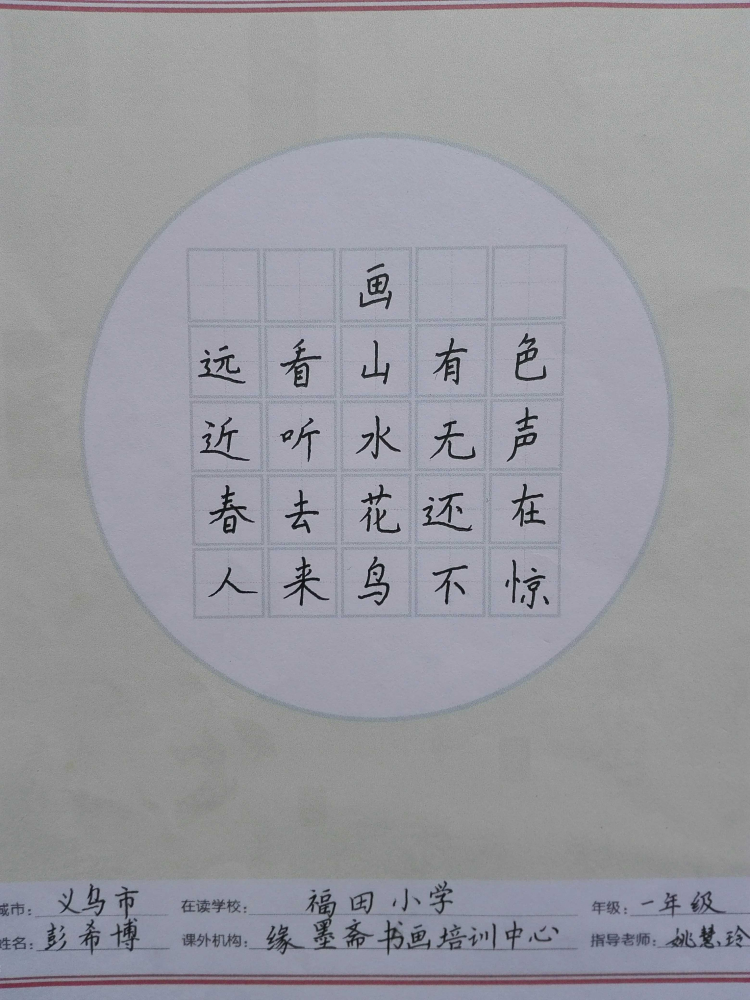 画
远看山有色
近听水无声
春去花还在
人来鸟不惊
城市：义乌市 在读学校：福田小学 年级：一年级
姓名：彭希博 课外机构：缘墨斋书画培训中心 指导老师：姚慧玲